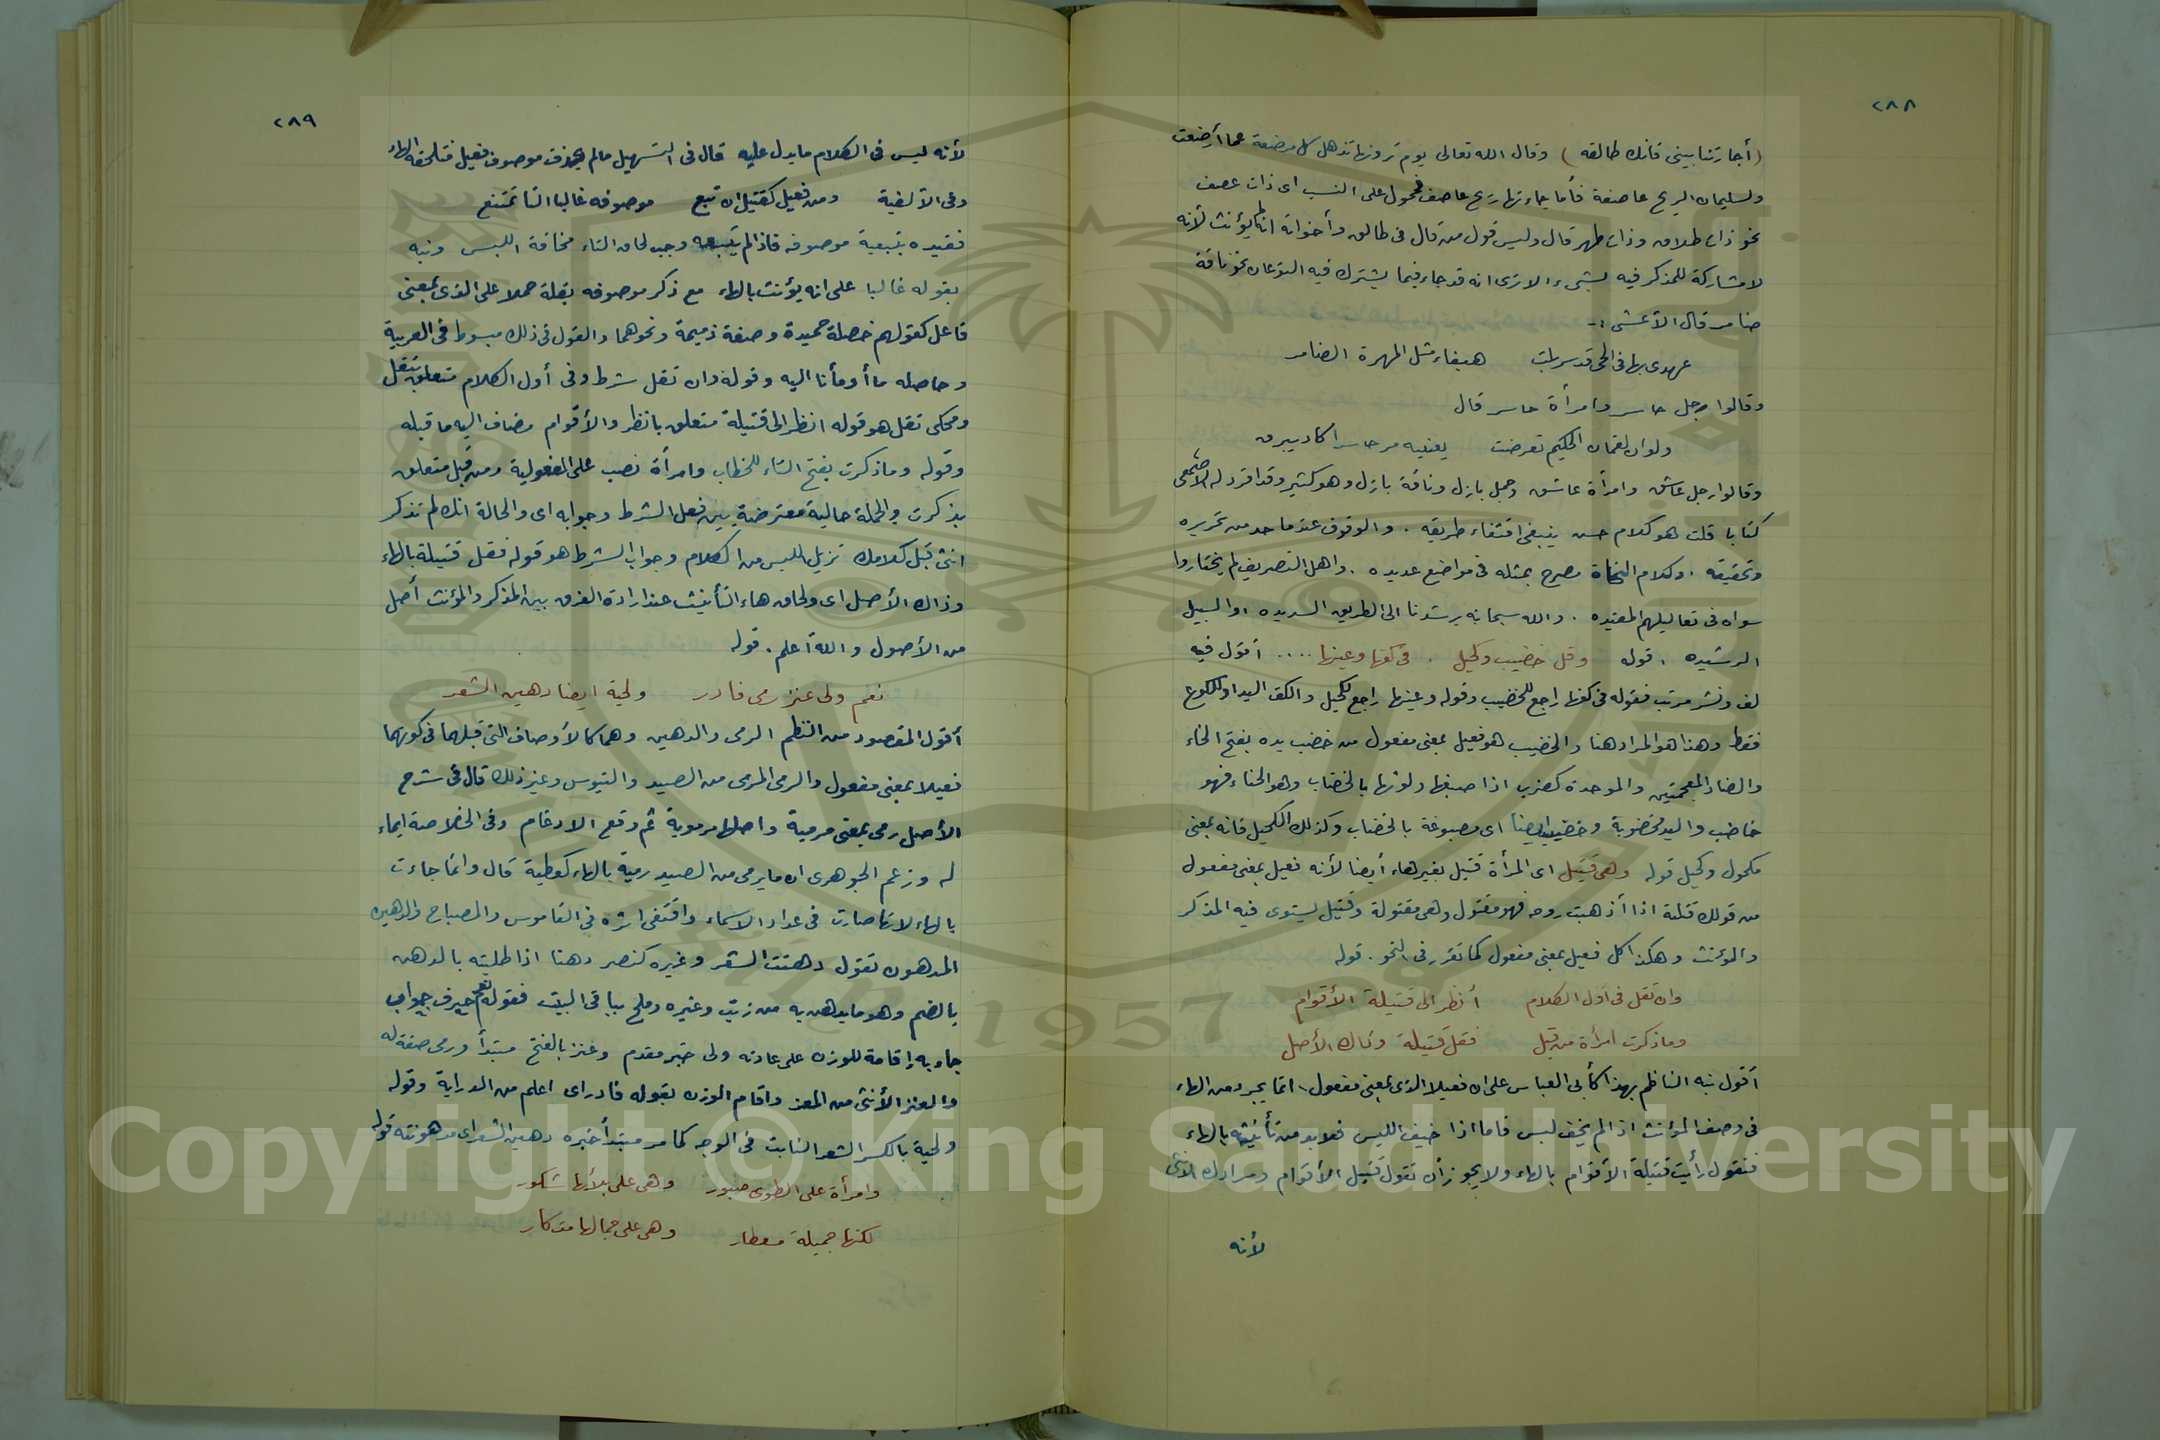 ٢٨٨
(أجارتنا بيني فانك طالقه) وقال الله تعالى يوم ترونها تذهل كل مرضعة عما أرضعت
ولسليمان الريح عاصفة فأما جاءتها ريح عاصف فمحمول على النسب اى ذات عصف
نحو ذات طلاق وذات طهر قال وليس قول من قال فى طالق وأخواته انما يؤنث لأنه
لا مشاركة للمذكر فيه بشىء الا ترى انه قد جاء فيما يشترك فيه النوعان نحو ناقة
ضامر قال الأعشى :-
عهدى بها فى الحى قد سربلت هيفاء مثل المهرة الضامر
وقالوا رجل حاسر وامرأة حاسر قال
ولو ان لقمان الحكيم تعرضت يعنيه مر حاسرا كاد يبرق
وقالوا رجل عاشق وامرأة عاشق وجمل بازل وناقة بازل وهو كثير وقد افرد له الأصمعى
كتابا قلت هو كلام حسن ينبغى اقتفاء طريقه . والوقوف عند ما حد من تحريره
وتحقيقه . وكلام النحاة مصرح بمثله فى مواضع عديده . واهل التصريف لم يختاروا
سواه فى تعاليلهم المفيده . والله سبحانه يرشدنا الى الطريق السديده . والسبيل
الرشيده . قوله وقل خضيب وكحيل . فى كفها وعينها .... أقول فيه
لف ونشر مرتب فقوله فى كفها راجع للخضيب وقوله وعينها راجع لكحيل والكف اليد او للكوع
فقط وهذا هو المراد هنا والخضيب هو فعيل بمعنى مفعول من خضب يده بفتح الخاء
والضاد المعجمتين والموحدة كضرب اذا صبغها ولونها بالخضاب وهو الحناء فهو
خاضب واليد مخضوبة وخضيب ايضا اى مصبوغة بالخضاب وكذلك الكحيل فانه بمعنى
مكحول وكحيل قوله وهى قتيل اى المرأة قتيل بغير هاء أيضا لأنه فعيل بمعنى مفعول
من قولك قتلته اذا أذهبت روحه فهو مقتول وهى مقتولة وقتيل يستوى فيه المذكر
والمؤنث وهكذا كل فعيل بمعنى مفعول كما تقرر فى النحو . قوله
وان تقل فى أول الكلام أنظر الى قتيلة الأقوام
وما ذكرت امرأة من قبل فقل قتيلة وذاك الأصل
أقول نبه الناظم بهذا كأبى العباس على ان فعيلا الذى بمعنى مفعول انما يجرد من الهاء
فى وصف المؤنث اذ الم يخف لبس فاما اذا خيف اللبس فلا بد من تأنيثه بالهاء
فتقول رأيت قتيلة الأقوام بالهاء ولا يجوز أن تقول قتيل الأقوام ومرادك الأنثى
لأنه
٢٨٩
لأنه ليس فى الكلام ما يدل عليه قال فى التسهيل ما لم يحذف موصوف فعيل فتلحقه الهاء
وفى الألفية ومن فعيل كقتيل ان تبع موصوفه غالبا التا تمتنع
فقيده بتبعية موصوفه فاذا لم يتبعه وجب لحاق التاء مخافة اللبس ونبه
بقوله غالبا على انه يؤنث بالهاء مع ذكر موصوفه بقلة حملا على الذى بمعنى
فاعل كقولهم خصلة حميدة وصفة ذميمة ونحوهما والقول فى ذلك مبسوط فى العربية
وحاصله ما أومأنا اليه وقوله وان تقل شرط وفى أول الكلام متعلق بتقل
ومحكى تقل هو قوله انظر الى قتيلة متعلق بانظر والأقوام مضاف اليه ما قبله
وقوله وما ذكرت بفتح التاء للخطاب وامرأة نصب على المفعولية ومن قبل متعلق
بذكرت والجملة حالية معترضة بين فعل الشرط وجوابه اى والحالة انك لم تذكر
انثى قبل كلامك تزيل اللبس من الكلام وجواب الشرط هو قوله فقل قتيلة بالهاء
وذاك الأصل اى ولحاق هاء التأنيث عند ارادة الفرق بين المذكر والمؤنث أصل
من الأصول والله أعلم . قوله
نعم ولى عنز رمى فادر ولحية ايضا دهين الشعر
أقول المقصود من النظم الرمى والدهين وهما كالأوصاف التى قبلهما فى كونهما
فعيلا بمعنى مفعول والرمى المرمى من الصيد والتيوس وغير ذلك قال فى شرح
الأصل رمى بمعنى مرمية واصلها مرموية ثم وقع الادغام وفى الخلاصة ايماء
له وزعم الجوهرى ان ما يرمى من الصيد رمية بالهاء كعطية قال وانما جاءت
بالهاء لانها صارت فى عداد الاسماء واقتفى اثره فى القاموس والمصباح والدهين
المدهون تقول دهنت الشعر وغيره كنصر دهنا اذا طليته بالدهن
بالضم وهو ما يدهن به من زيت وغيره وملح بباقى البيت فقوله نعم حرف جواب
جاء به إقامة للوزن على عادته ولى خبر مقدم وعنز بالفتح مبتدأ ورمى صفة له
والعنز الأنثى من المعز واقام الوزن بقوله فادر اى اعلم من الدراية وقوله
ولحية بالكسر الشعر النابت فى الوجه كما مر مبتدأ خبره دهين الشعر اى مدهونته قوله
وامرأة على الطوى صبور وهى على بلائها شكور
لكنها جميلة معطار وهى على جمالها مذكار
Copyright © King Saud University
1957